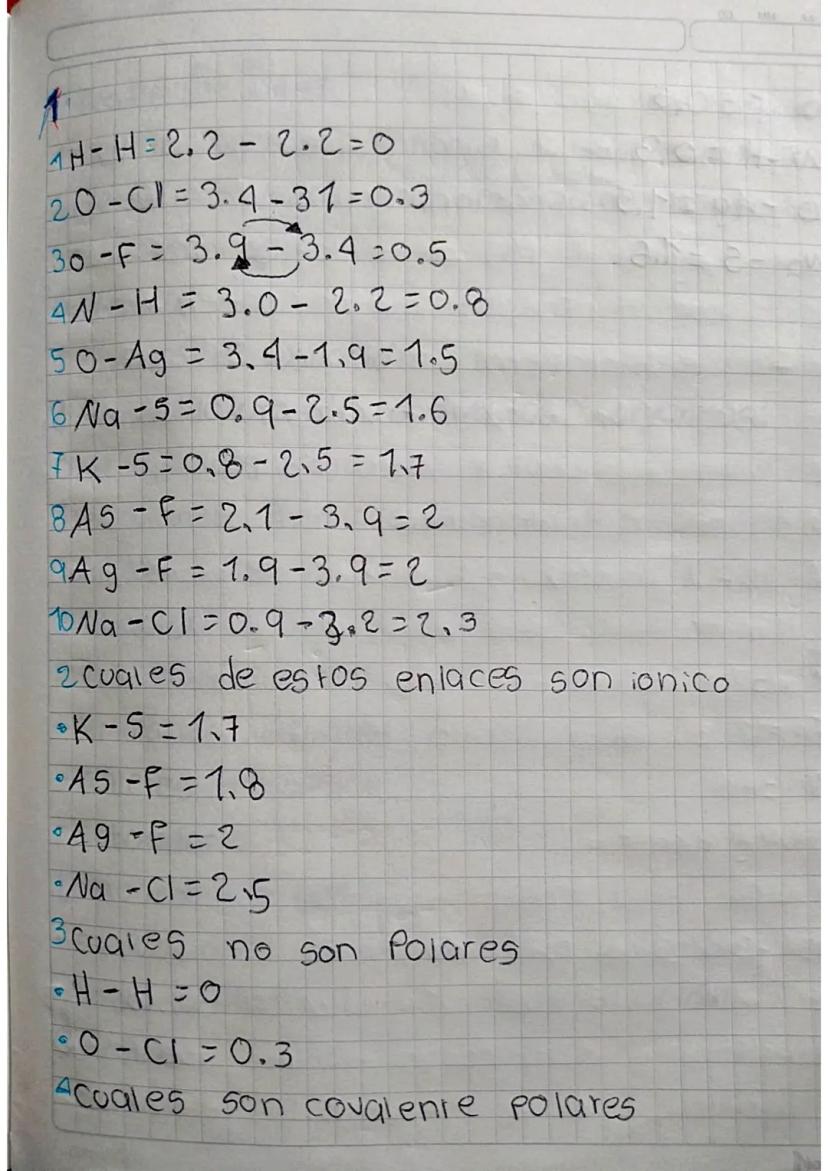 1
1 H - H = 2.2 - 2.2 = 0
2 O - Cl = 3.4 - 31 = 0.3
3 O - F = 3.9 - 3.4 = 0.5
4 N - H = 3.0 - 2.2 = 0.8
5 O - Ag = 3.4 - 1.9 = 1.5
6 Na - S = 0.9 - 2.5 = 1.6
7 K - S = 0.8 - 2.5 = 1.7
8 AS - F = 2.1 - 3.9 = 2
9 Ag - F = 1.9 - 3.9 = 2
10 Na - Cl = 0.9 - 3.2 = 2.3
2 cuales de estos enlaces son ionico
• K - S = 1.7
• AS - F = 1.8
• Ag - F = 2
• Na - Cl = 2.5
3 cuales no son Polares
• H - H = 0
• O - Cl = 0.3
4 cuales son covalente polares